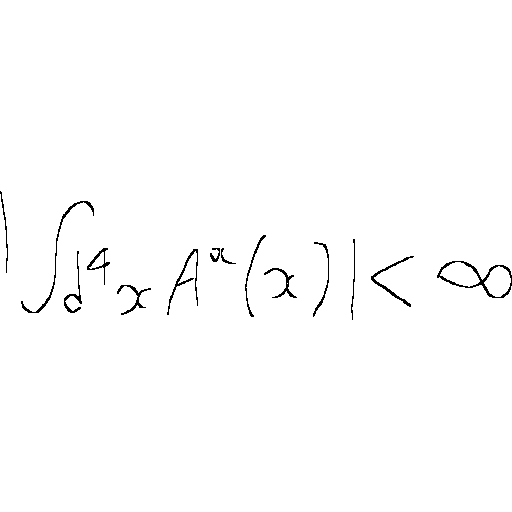 |∫d⁴x Aᵃ(x)| < ∞